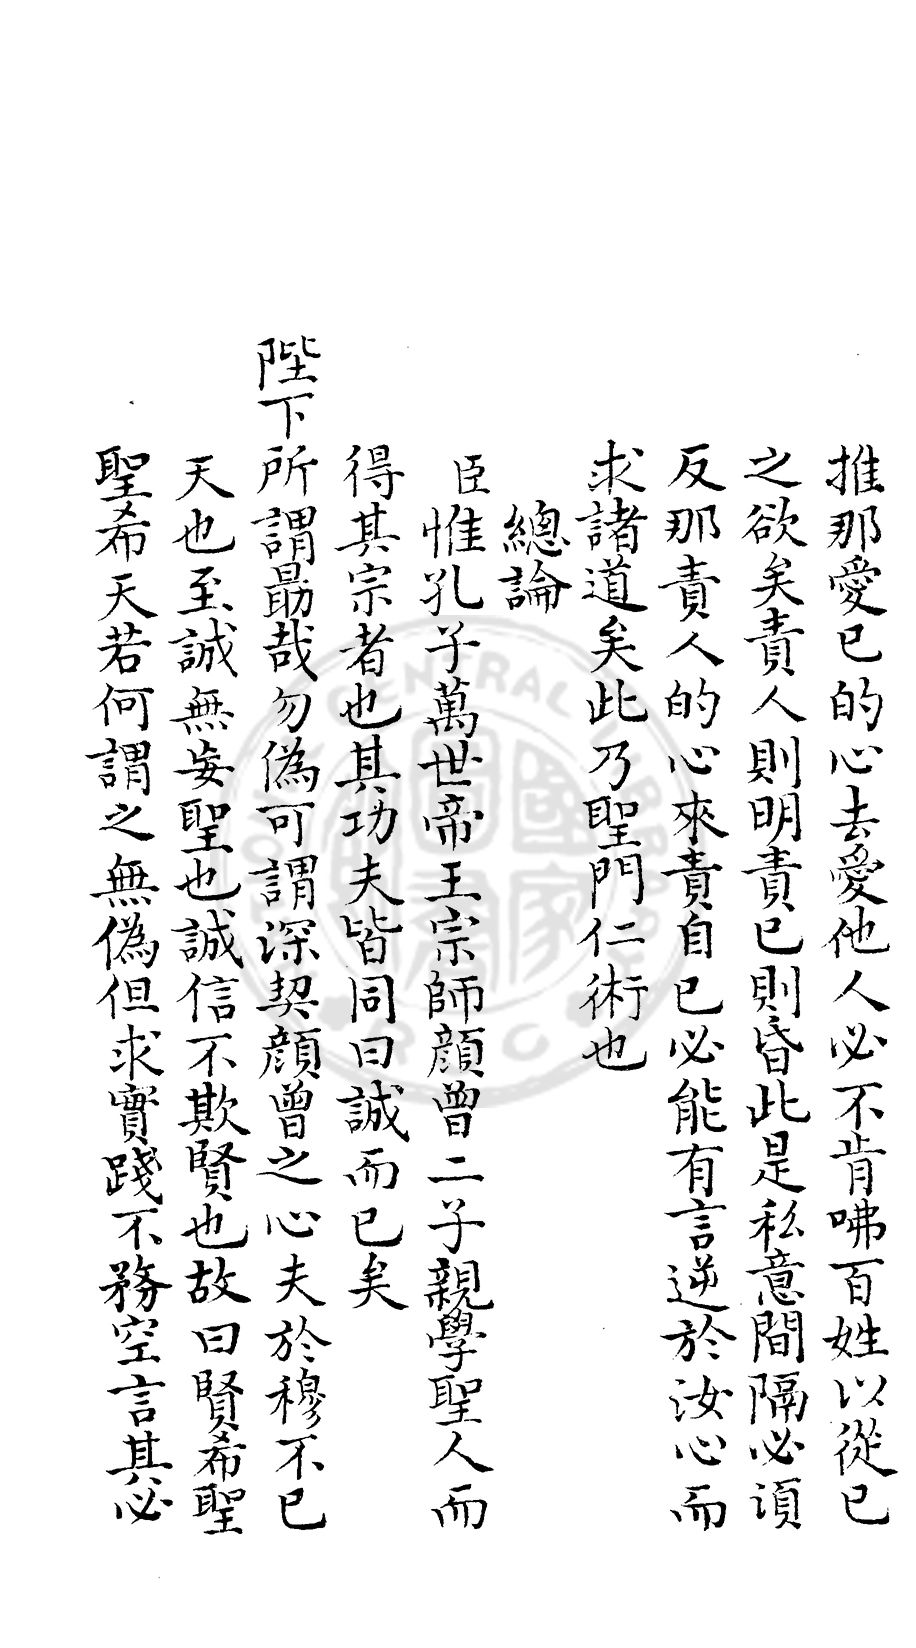 推那愛已的心去愛他人必不肯咈百姓以從已
之欲矣責人則明責已則昏此是私意間隔必須
反那責人的心來責自已必能有言逆於汝心而
求諸道矣此乃聖門仁術也
總論
臣惟孔子萬世帝王宗師顔曾二子親學聖人而
得其宗者也其功夫皆同曰誠而已矣
陛下所謂勗哉勿偽可謂深契顔曾之心夫於穆不已
天也至誠無妄聖也誠信不欺賢也故曰賢希聖
聖希天若何謂之無偽但求實踐不務空言其必
NATIONAL CENTRAL LIBRARY
R.O.C
國家圖書館